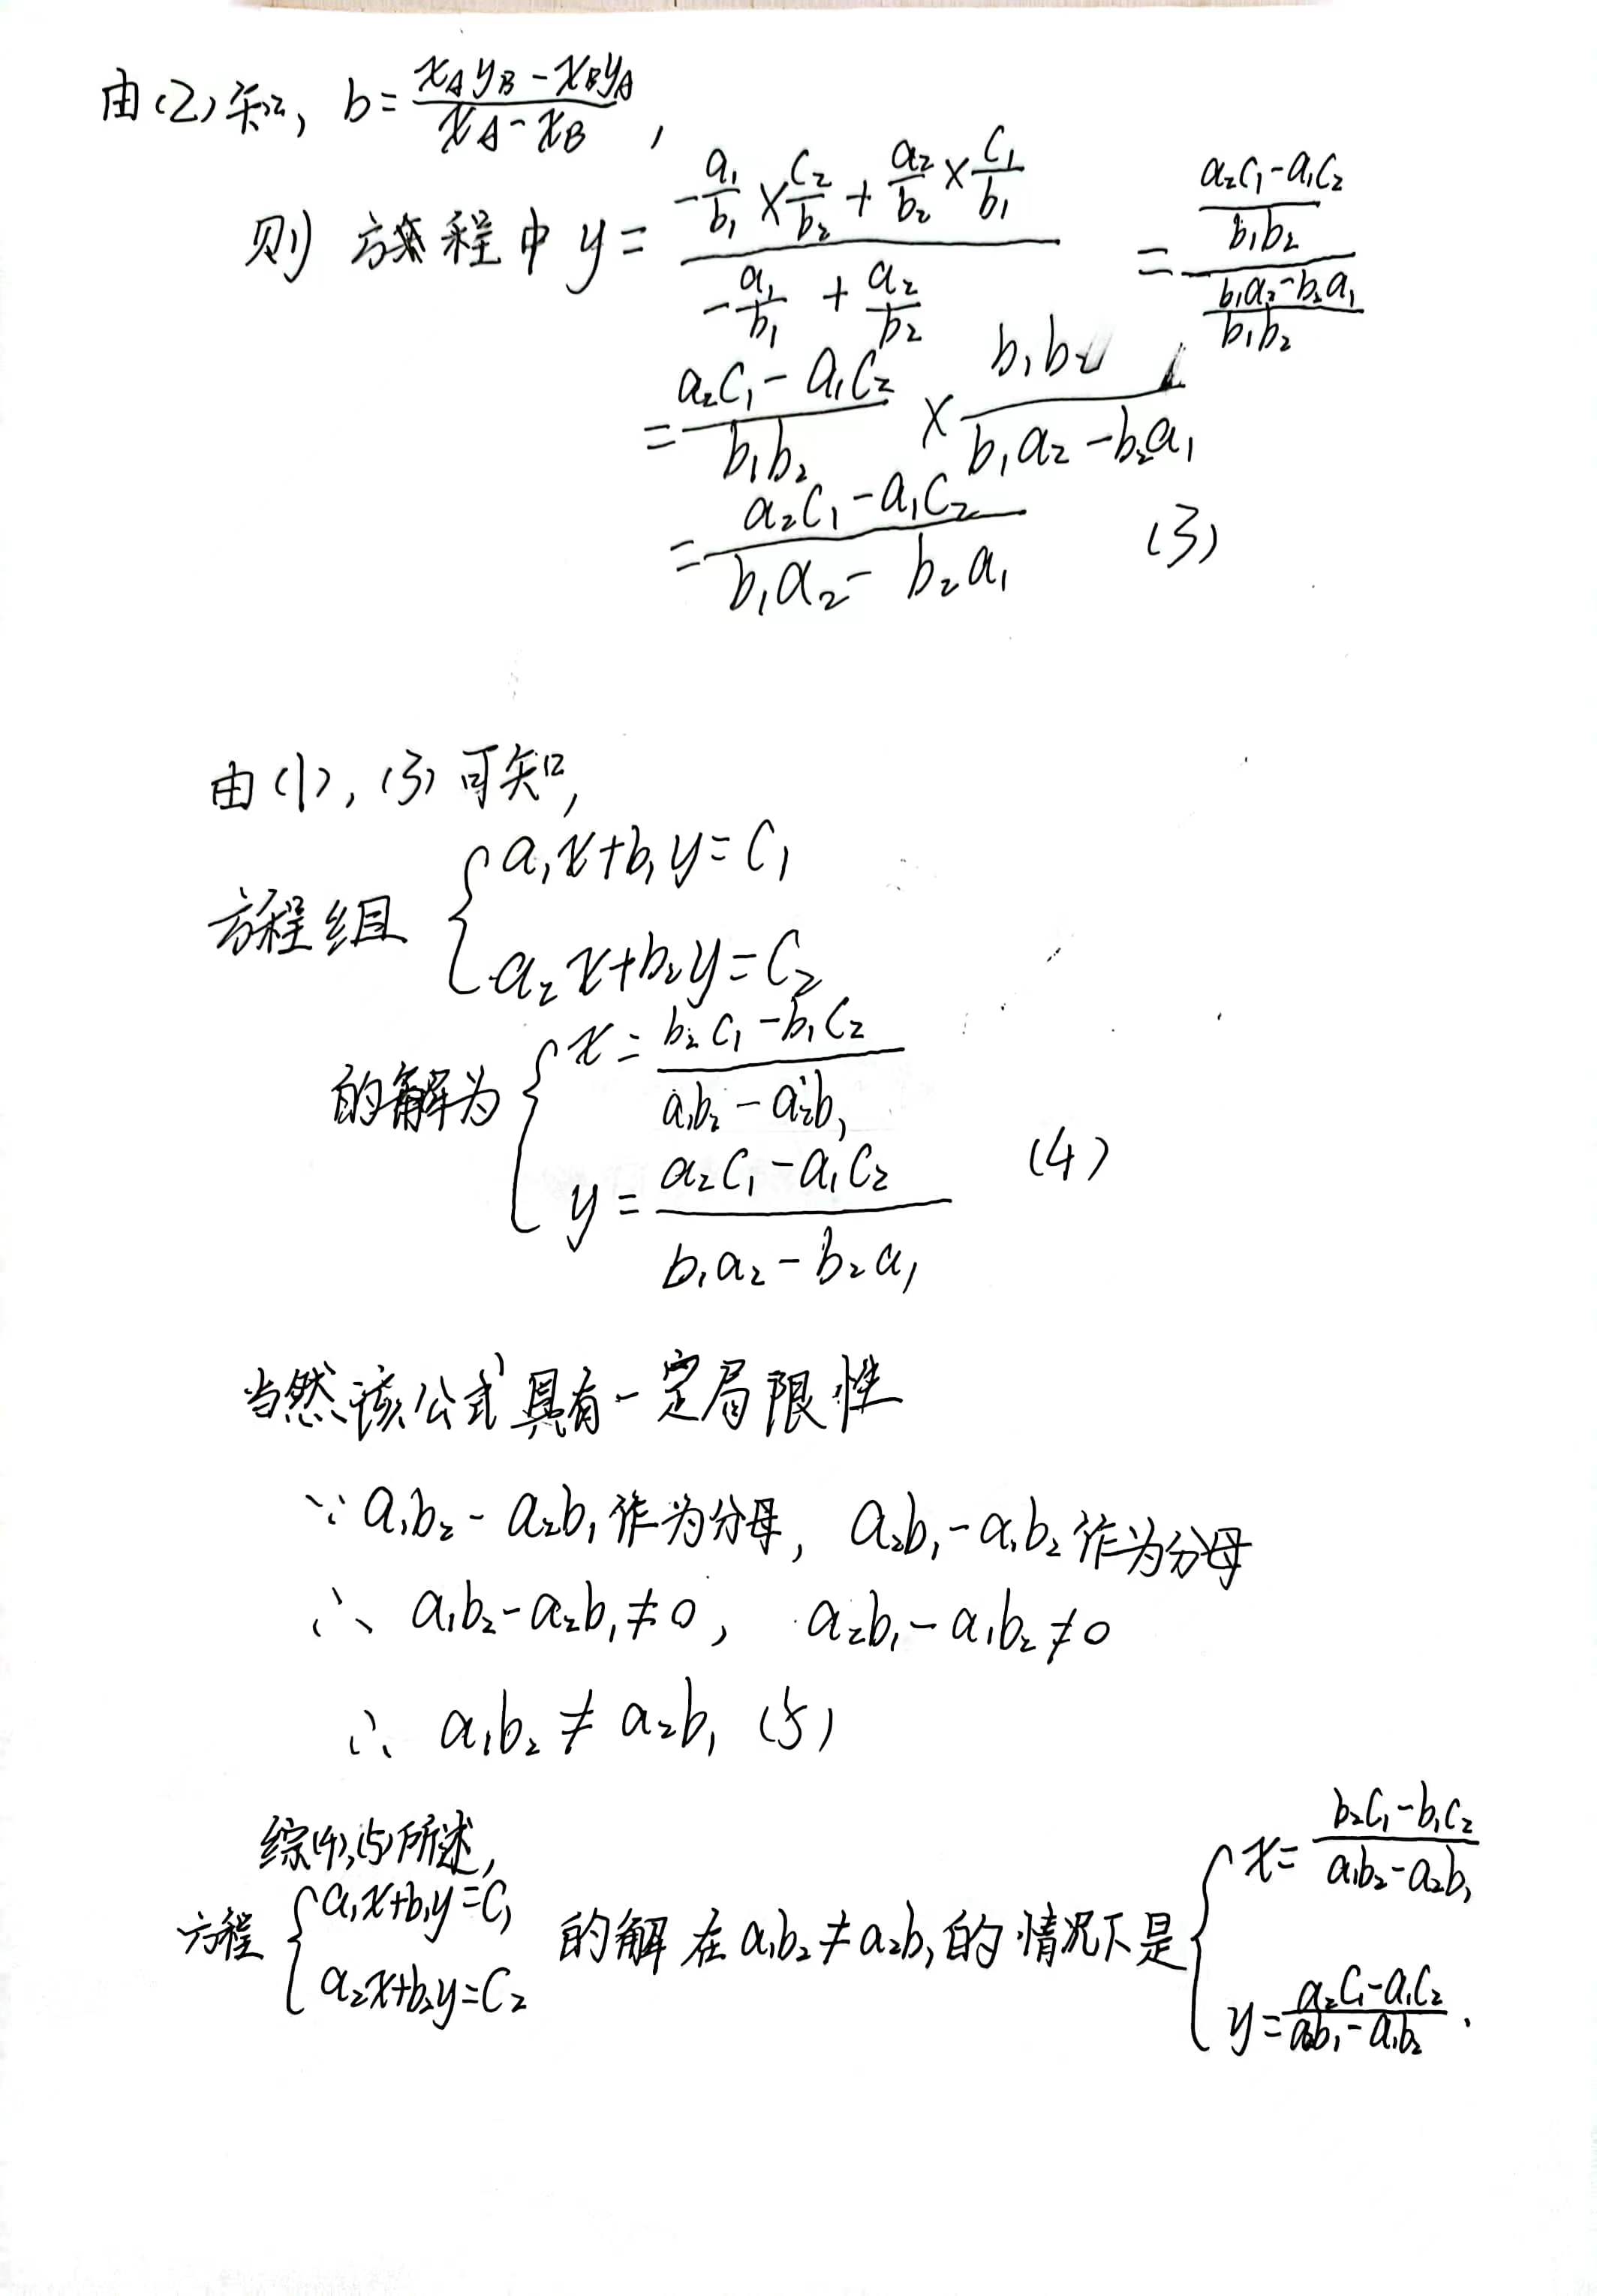 由(2)知, b=\frac{x_A y_B - x_B y_A}{x_A - x_B},
则 方程中 y=\frac{-\frac{a_1}{b_1}×\frac{c_2}{b_2}+\frac{a_2}{b_2}×\frac{c_1}{b_1}}{-\frac{a_1}{b_1}+\frac{a_2}{b_2}} =\frac{\frac{a_2c_1-a_1c_2}{b_1b_2}}{\frac{b_1a_2-b_2a_1}{b_1b_2}}
=\frac{a_2c_1-a_1c_2}{b_1b_2}×\frac{b_1b_2}{b_1a_2-b_2a_1}
=\frac{a_2c_1-a_1c_2}{b_1a_2-b_2a_1} (3)
由(1),(3)可知,
方程组 \begin{cases} a_1x+b_1y=c_1 \\ a_2x+b_2y=c_2 \end{cases}
的解为 \begin{cases} x=\frac{b_2c_1-b_1c_2}{a_1b_2-a_2b_1} \\ y=\frac{a_2c_1-a_1c_2}{b_1a_2-b_2a_1} \end{cases} (4)
当然,该公式具有一定局限性
∵ a_1b_2-a_2b_1作为分母, a_2b_1-a_1b_2作为分母
∴ a_1b_2-a_2b_1≠0, a_2b_1-a_1b_2≠0
∴ a_1b_2≠a_2b_1 (5)
综(4),(5)所述,
方程 \begin{cases} a_1x+b_1y=c_1 \\ a_2x+b_2y=c_2 \end{cases} 的解 在a_1b_2≠a_2b_1的情况下是 \begin{cases} x=\frac{b_2c_1-b_1c_2}{a_1b_2-a_2b_1} \\ y=\frac{a_2c_1-a_1c_2}{a_2b_1-a_1b_2} \end{cases}.